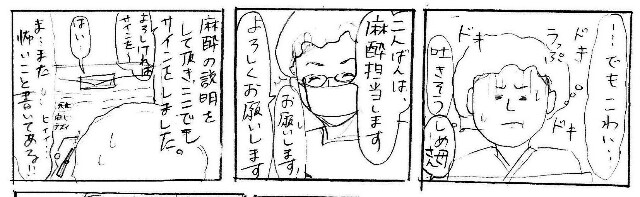 …でもこわい…
ドキ
ドキ
うっぷ
ドキ
吐きそう
こんばんは、
麻酔担当します
お願いします
よろしくお願いします
麻酔の説明を
して頂き、ここでも
サインをしました。
よろしければ
サインを〜
はい…
ヒィィ
ま…また
怖いこと書いてある!!